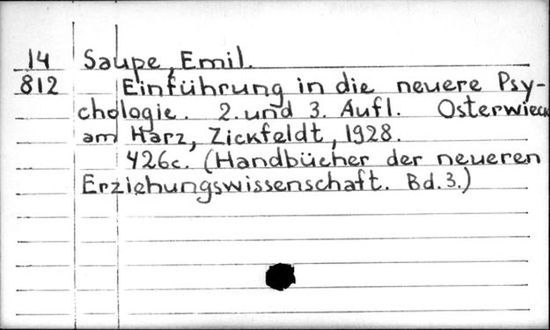 14 Saupe, Emil.
812 Einführung in die neuere Psy-
chologie. 2. und 3. Aufl. Osterwieck
am Harz, Zickfeldt, 1928.
426c. (Handbücher der neueren
Erziehungswissenschaft. Bd. 3.)